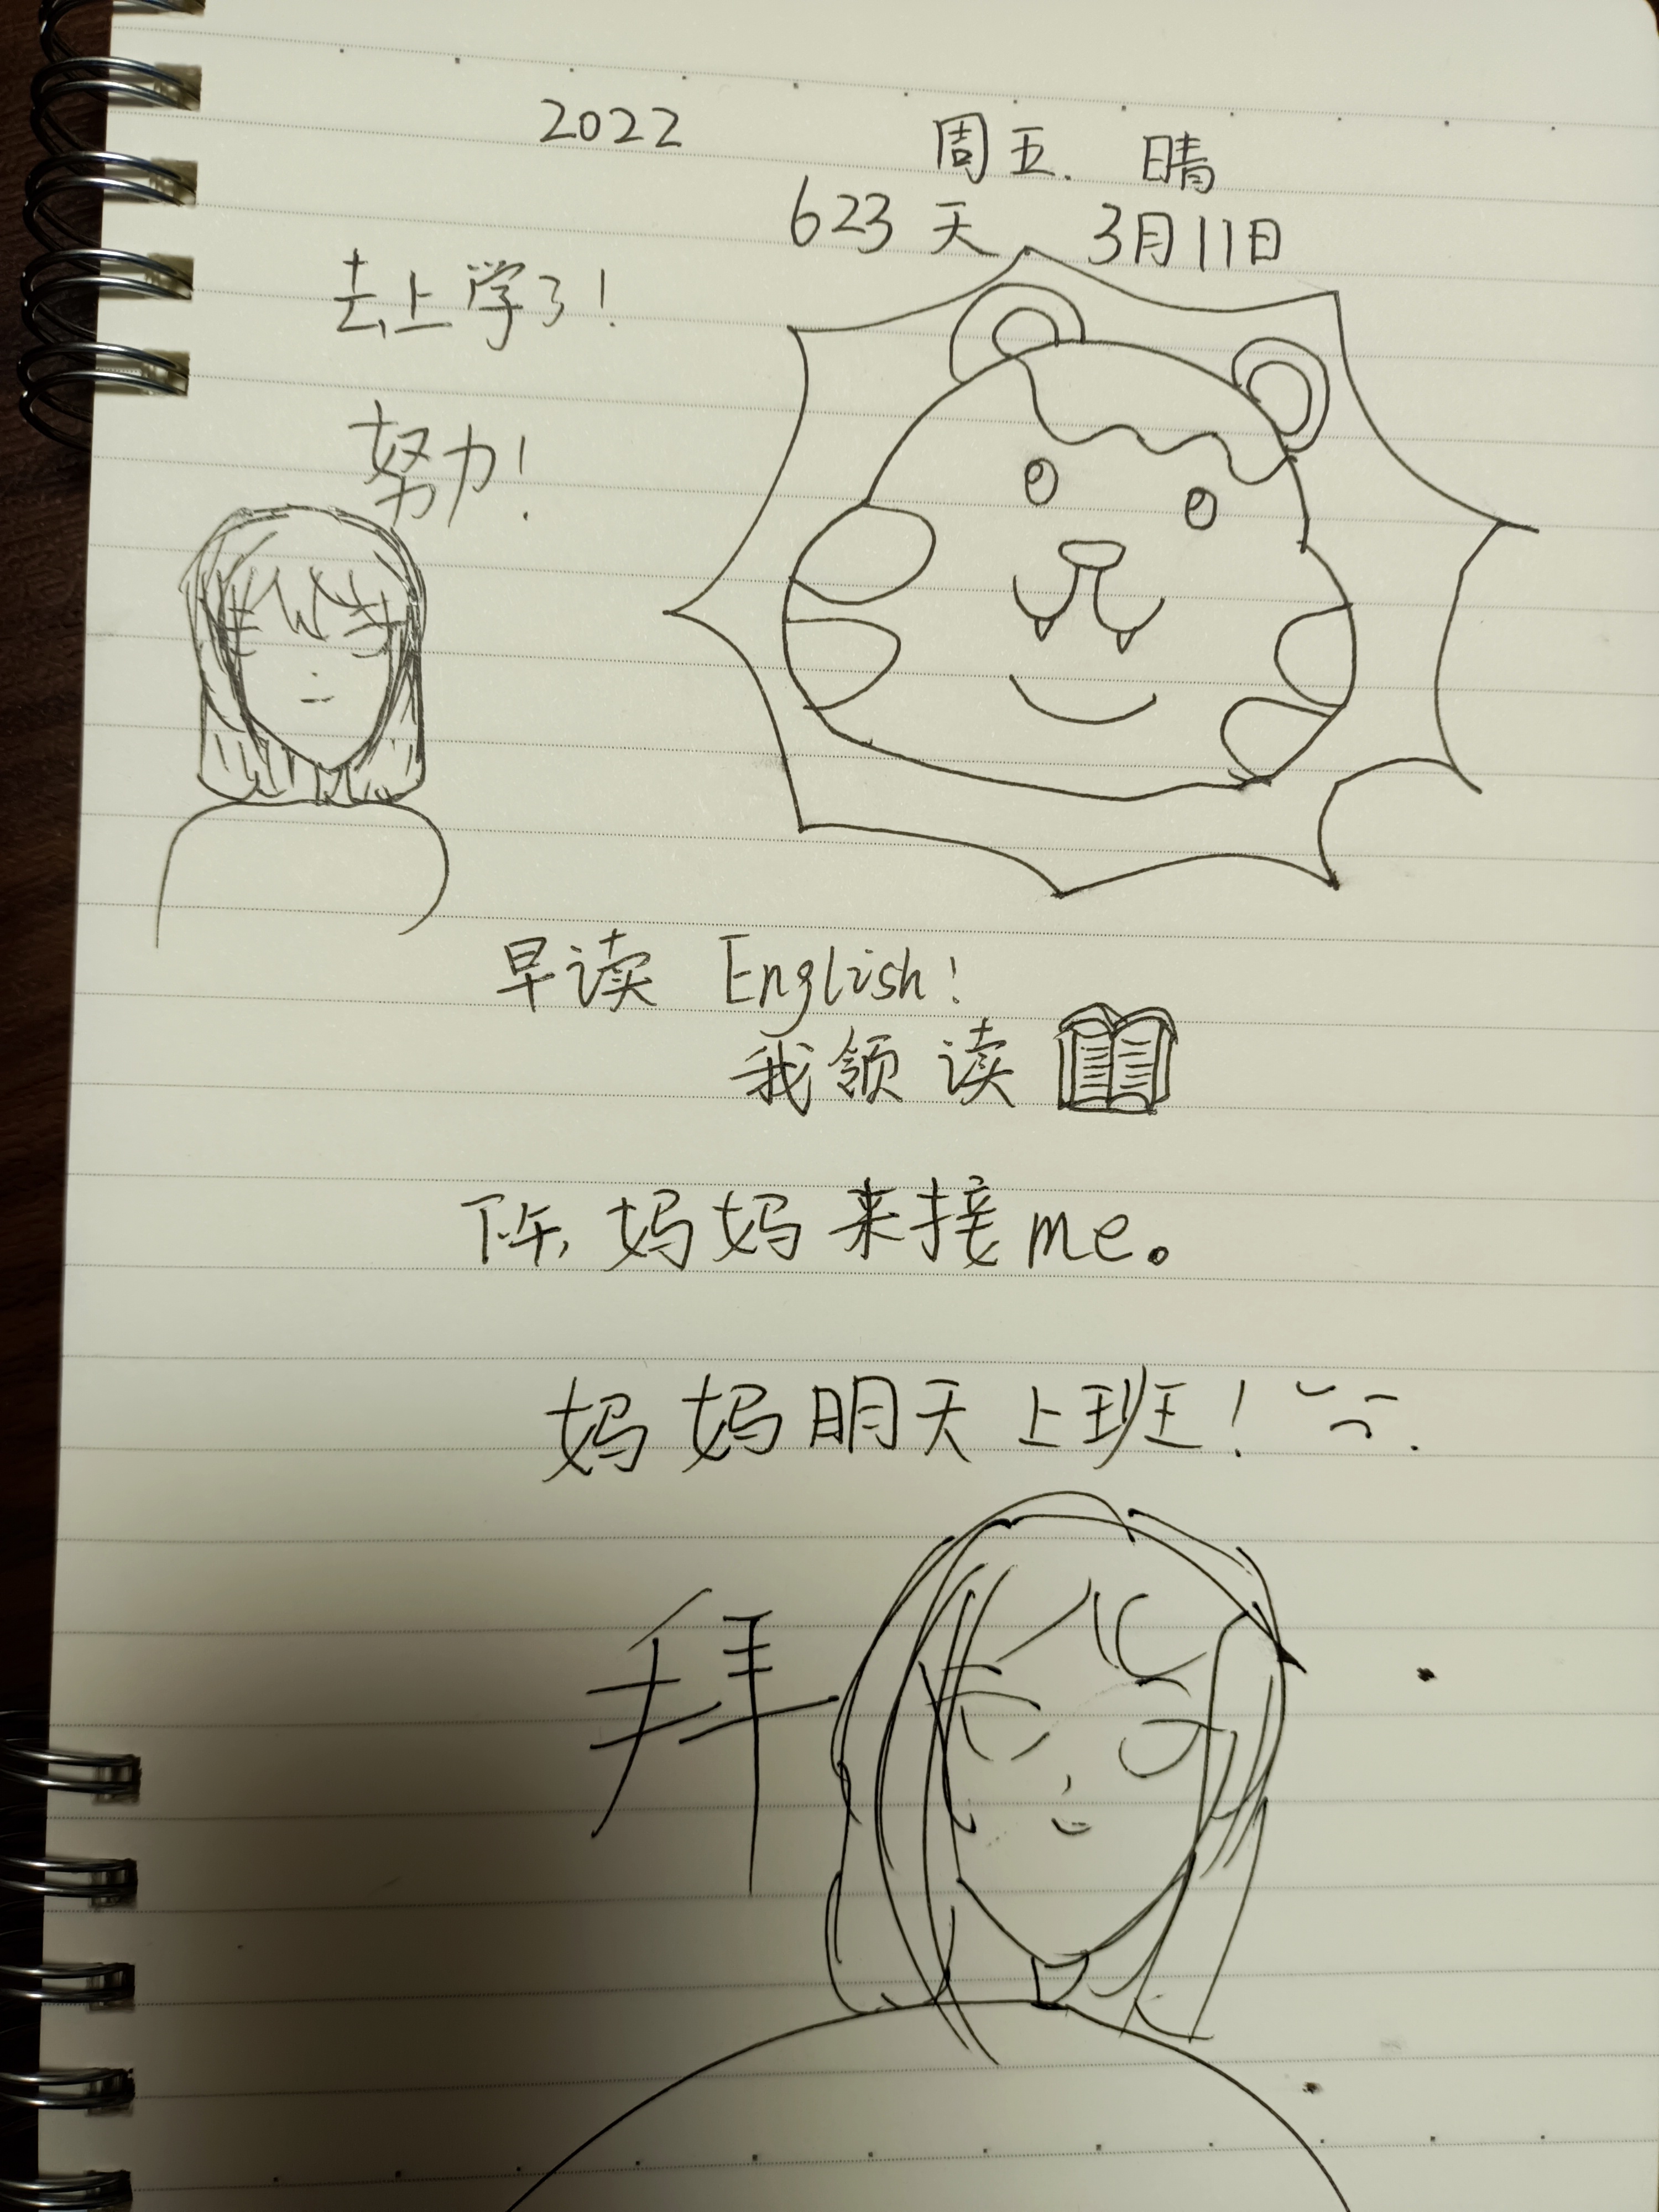 2022 周五. 晴
623天 3月11日
去上学了!
努力!
早读 English!
我领读
下午, 妈妈来接me。
妈妈明天上班!
拜